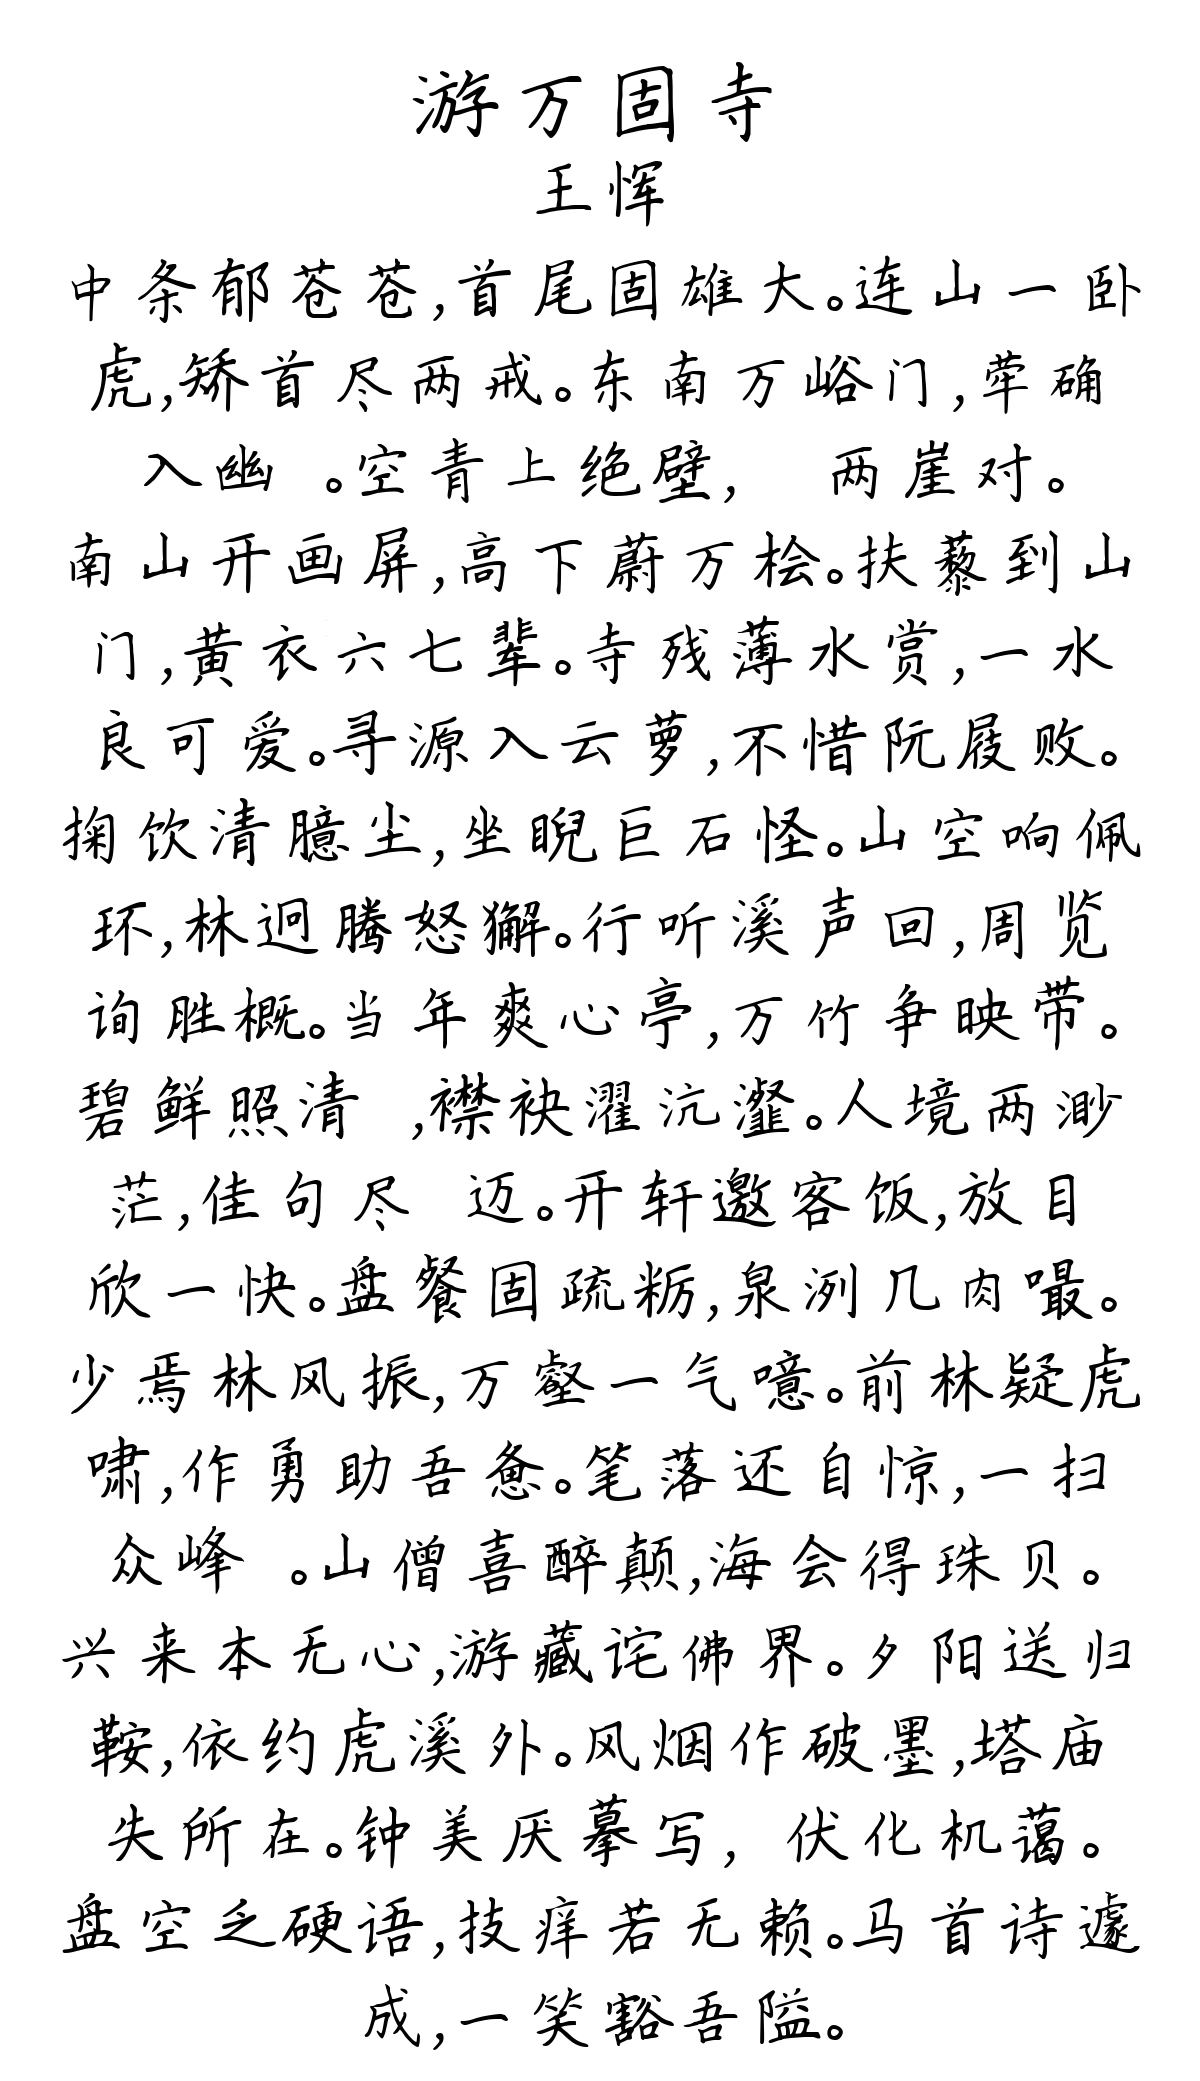 游万固寺
王恽
中条郁苍苍,首尾固雄大。连山一卧
虎,矫首尽两戒。东南万峪门,荦确
入幽 。空青上绝壁, 两崖对。
南山开画屏,高下蔚万桧。扶藜到山
门,黄衣六七辈。寺残薄水赏,一水
良可爱。寻源入云萝,不惜阮屐败。
掬饮清臆尘,坐睨巨石怪。山空响佩
环,林迥腾怒獬。行听溪声回,周览
询胜概。当年爽心亭,万竹争映带。
碧鲜照清 ,襟袂濯沆瀣。人境两渺
茫,佳句尽 迈。开轩邀客饭,放目
欣一快。盘餐固疏粝,泉洌几肉嘬。
少焉林风振,万壑一气噫。前林疑虎
啸,作勇助吾惫。笔落还自惊,一扫
众峰 。山僧喜醉颠,海会得珠贝。
兴来本无心,游藏诧佛界。夕阳送归
鞍,依约虎溪外。风烟作破墨,塔庙
失所在。钟美厌摹写, 伏化机蔼。
盘空乏硬语,技痒若无赖。马首诗遽
成,一笑豁吾隘。